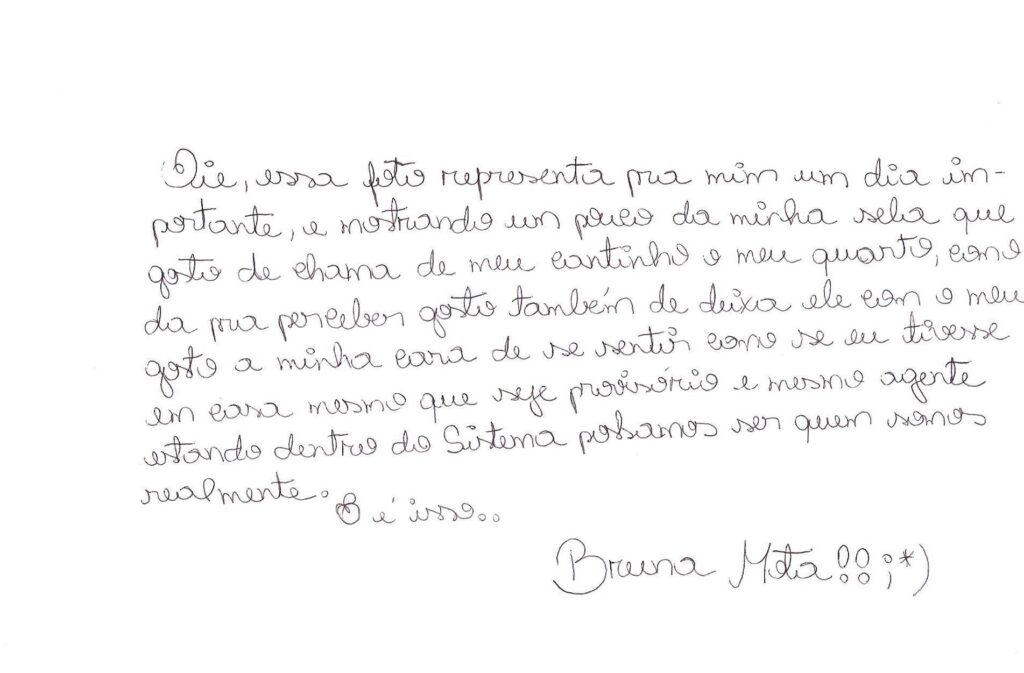 Oie, essa foto representa pra mim um dia im-
portante, e mostrando um pouco da minha sela que
gosto de chama de meu cantinho o meu quarto, como
da pra perceber gosto também de deixa ele com o meu
gosto a minha cara de se sentir como se eu tivesse
em casa mesmo que seje provisório e mesmo agente
estando dentro do Sistema possamos ser quem somos
realmente.
E é isso..
Bruna Mota!! ;*)